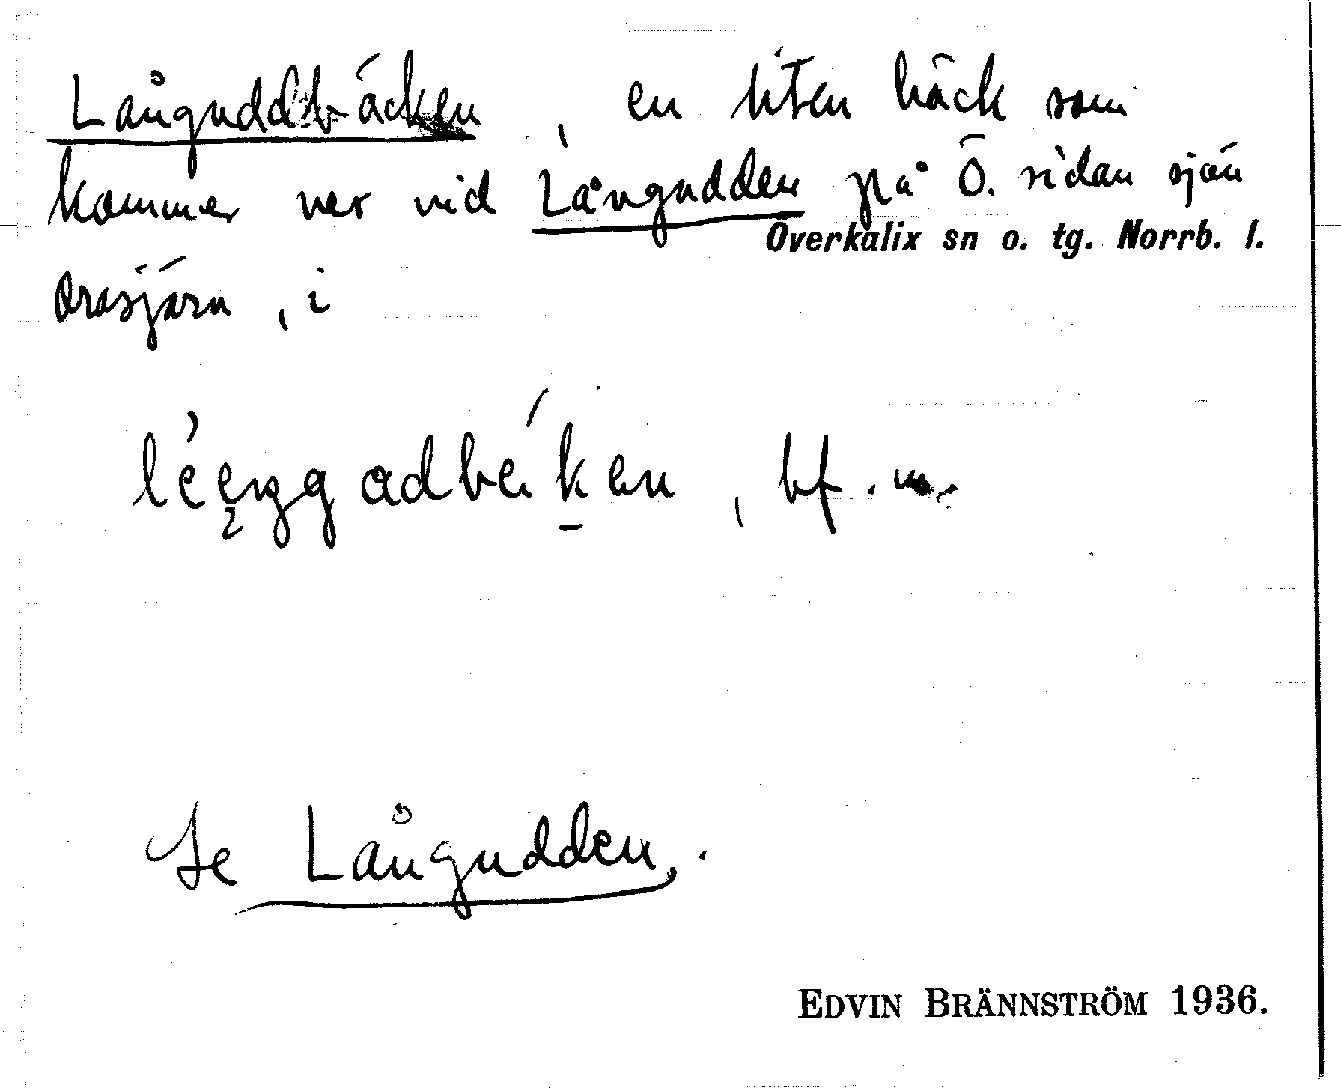 Långuddbäcken, en liten bäck som
kommer ner vid Långudden på Ö. sidan sjön
Överkalix sn o. tg. Norrb. l.
Orrsjärn, i
bf. m.
Se Långudden.
EDVIN BRÄNNSTRÖM 1936.